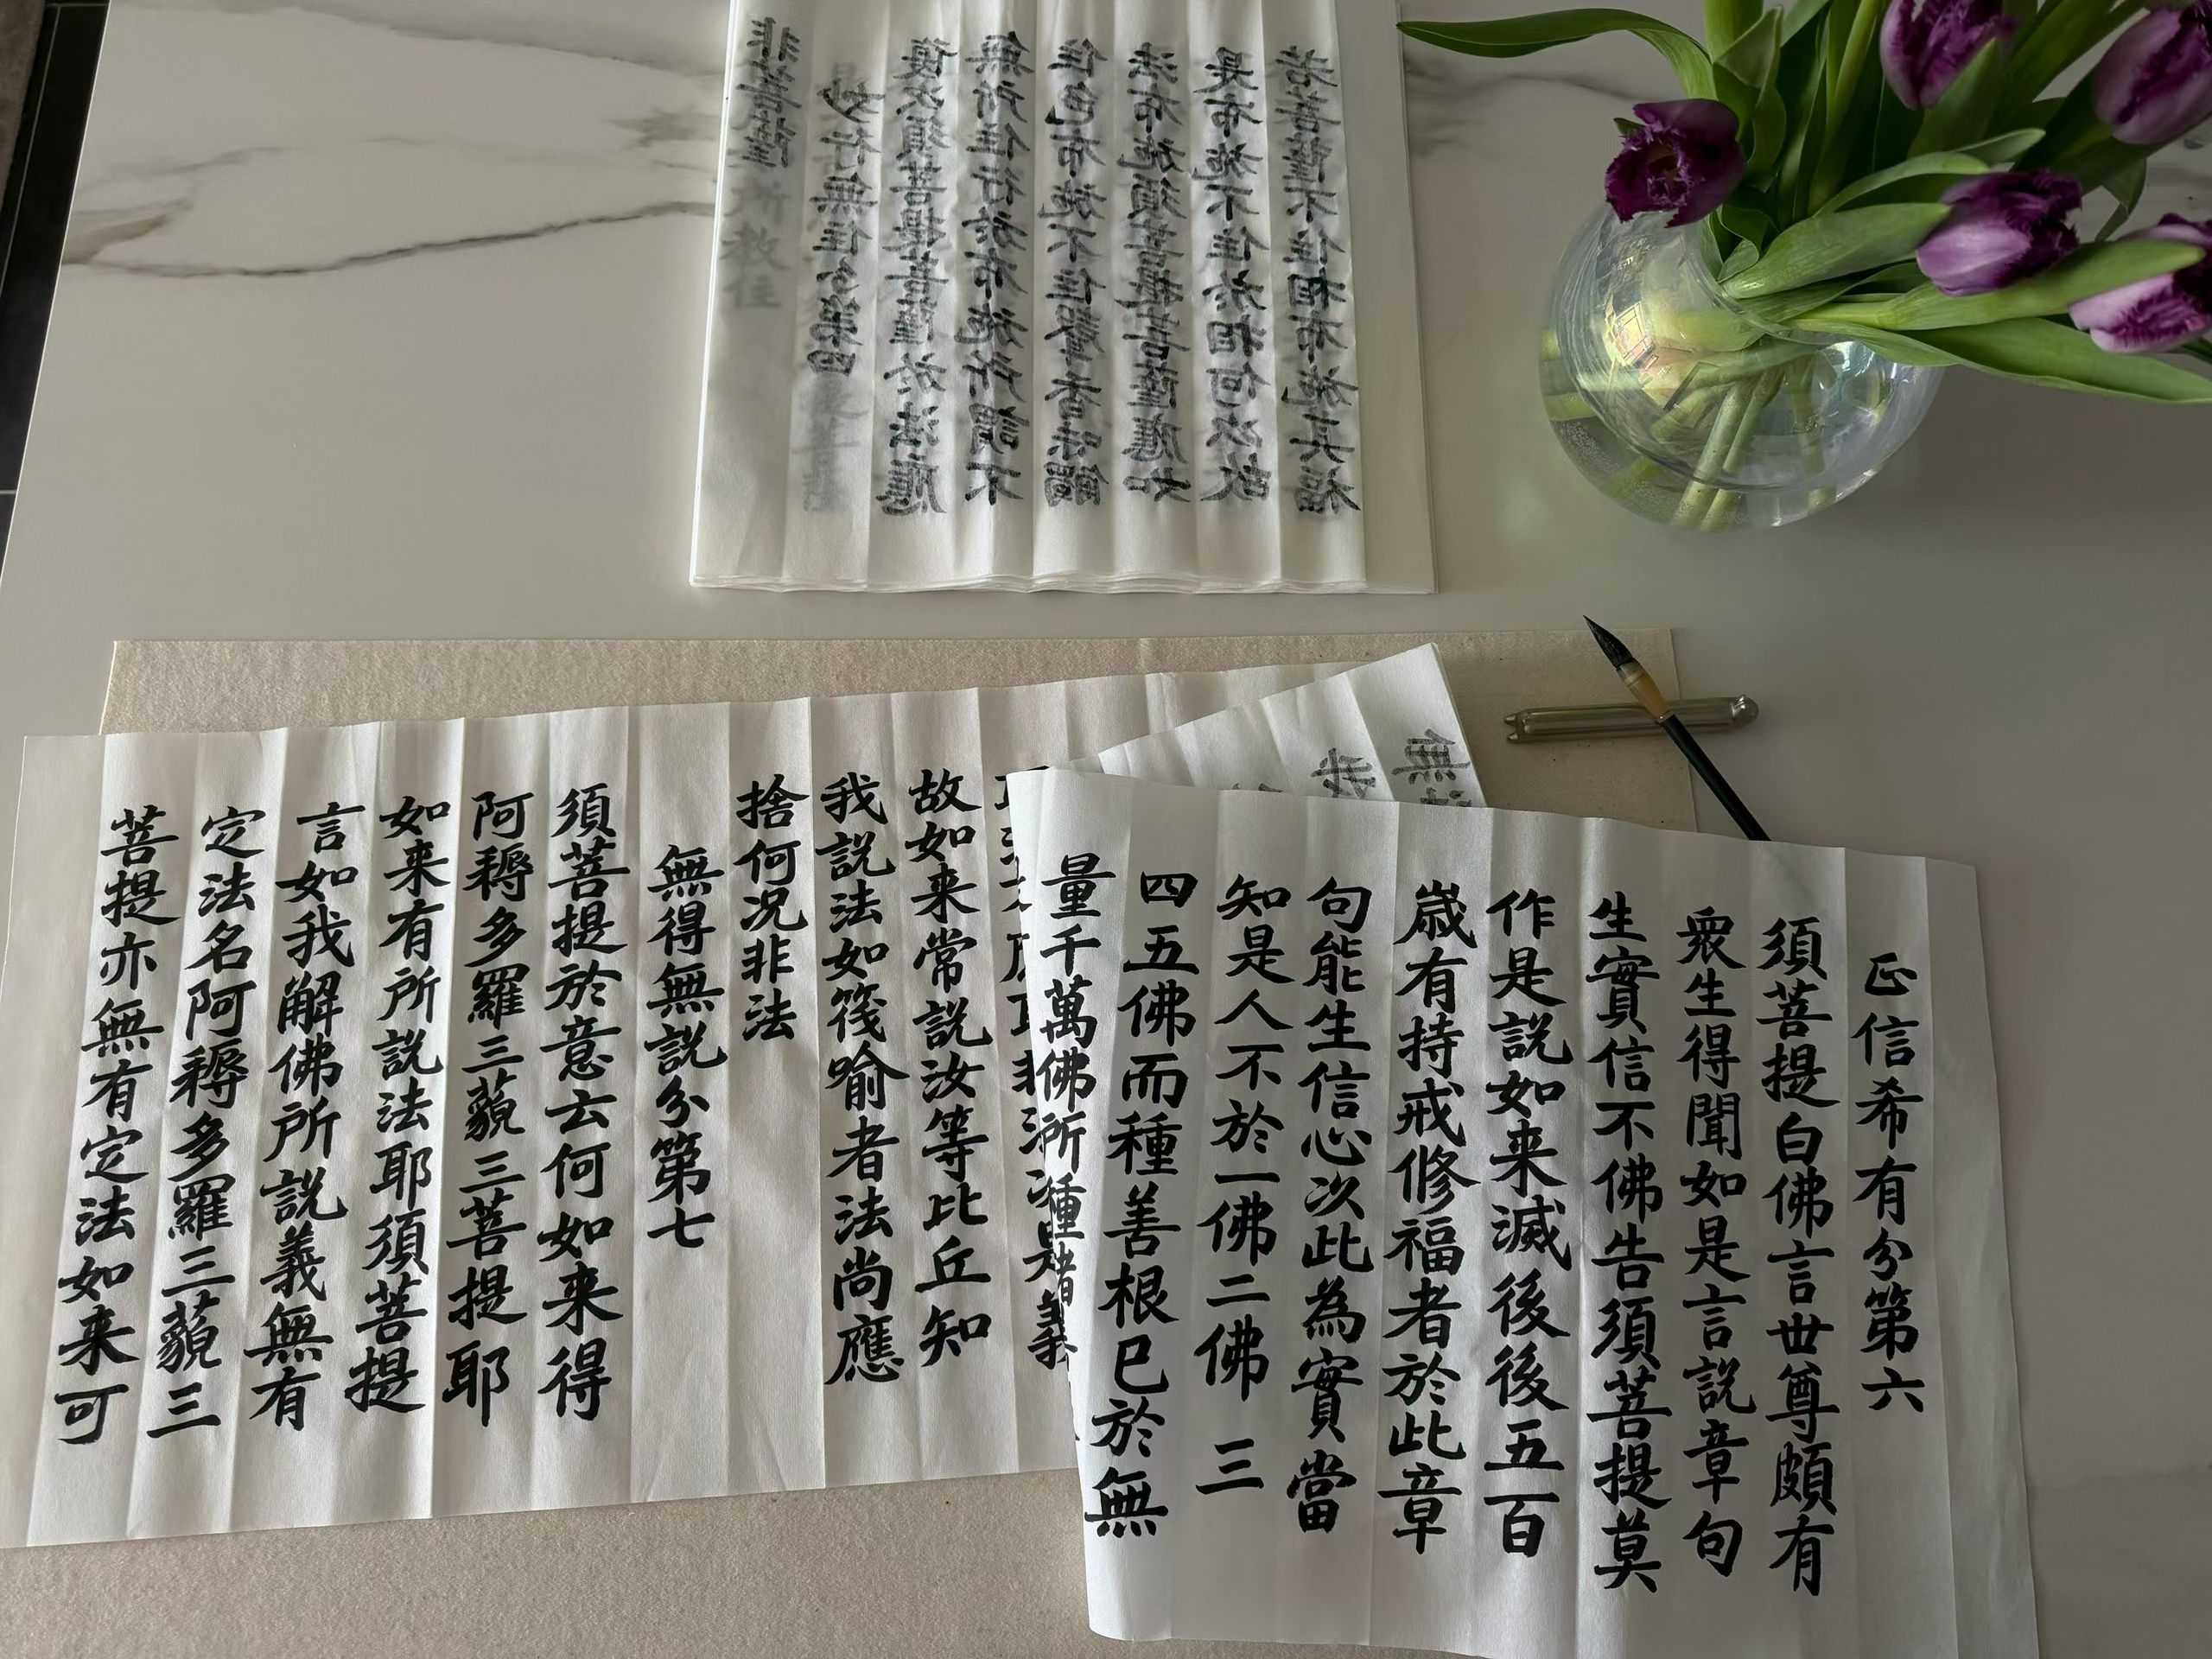 非菩薩
妙行無住分第四
復次須菩提菩薩於法應
無所住行於布施所謂不
住色布施不住聲香味觸
法布施須菩提菩薩應如
是布施不住於相何次故
若菩薩不住相布施其福
正信希有分第六
須菩提白佛言世尊頗有
衆生得聞如是言説章句
生實信不佛告須菩提莫
作是説如来滅後後五百
歳有持戒修福者於此章
句能生信心次此為實當
知是人不於一佛二佛三
四五佛而種善根已於無
量千萬佛所種
無
我
故如来常説汝等比丘知
我説法如筏喻者法尚應
捨何況非法
無得無説分第七
須菩提於意云何如来得
阿耨多羅三藐三菩提耶
如来有所説法耶須菩提
言如我解佛所説義無有
定法名阿耨多羅三藐三
菩提亦無有定法如来可